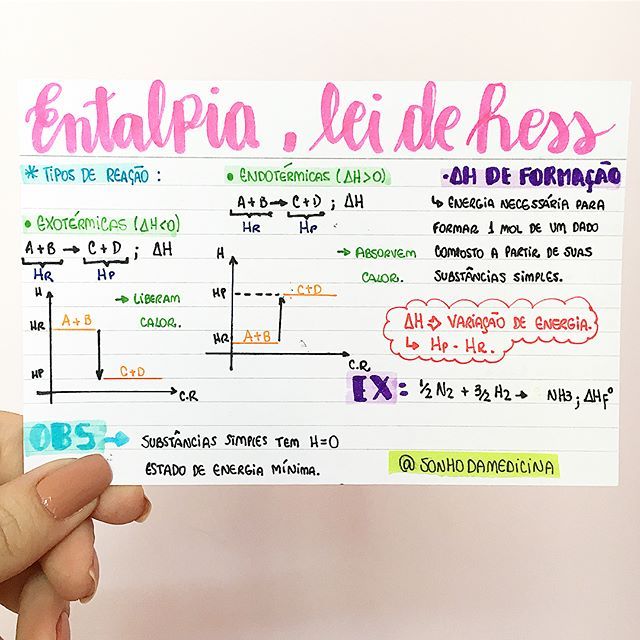 Entalpia, lei de hess
* TIPOS DE REAÇÃO:
• EXOTÉRMICAS (ΔH<0)
A+B → C+D ; ΔH
HR HP
H
→ LIBERAM
CALOR.
HR A+B
HP C+D
C.R
• ENDOTÉRMICAS (ΔH>0)
A+B → C+D ; ΔH
HR HP
H
→ ABSORVEM
CALOR.
HP C+D
HR A+B
C.R
• ΔH DE FORMAÇÃO
↳ ENERGIA NECESSÁRIA PARA
FORMAR 1 MOL DE UM DADO
COMPOSTO A PARTIR DE SUAS
SUBSTÂNCIAS SIMPLES.
ΔH => VARIAÇÃO DE ENERGIA.
↳ HP - HR.
EX: 1/2 N2 + 3/2 H2 → NH3 ; ΔHF°
OBS → SUBSTÂNCIAS SIMPLES TEM H=0
ESTADO DE ENERGIA MÍNIMA.
@SONHODAMEDICINA